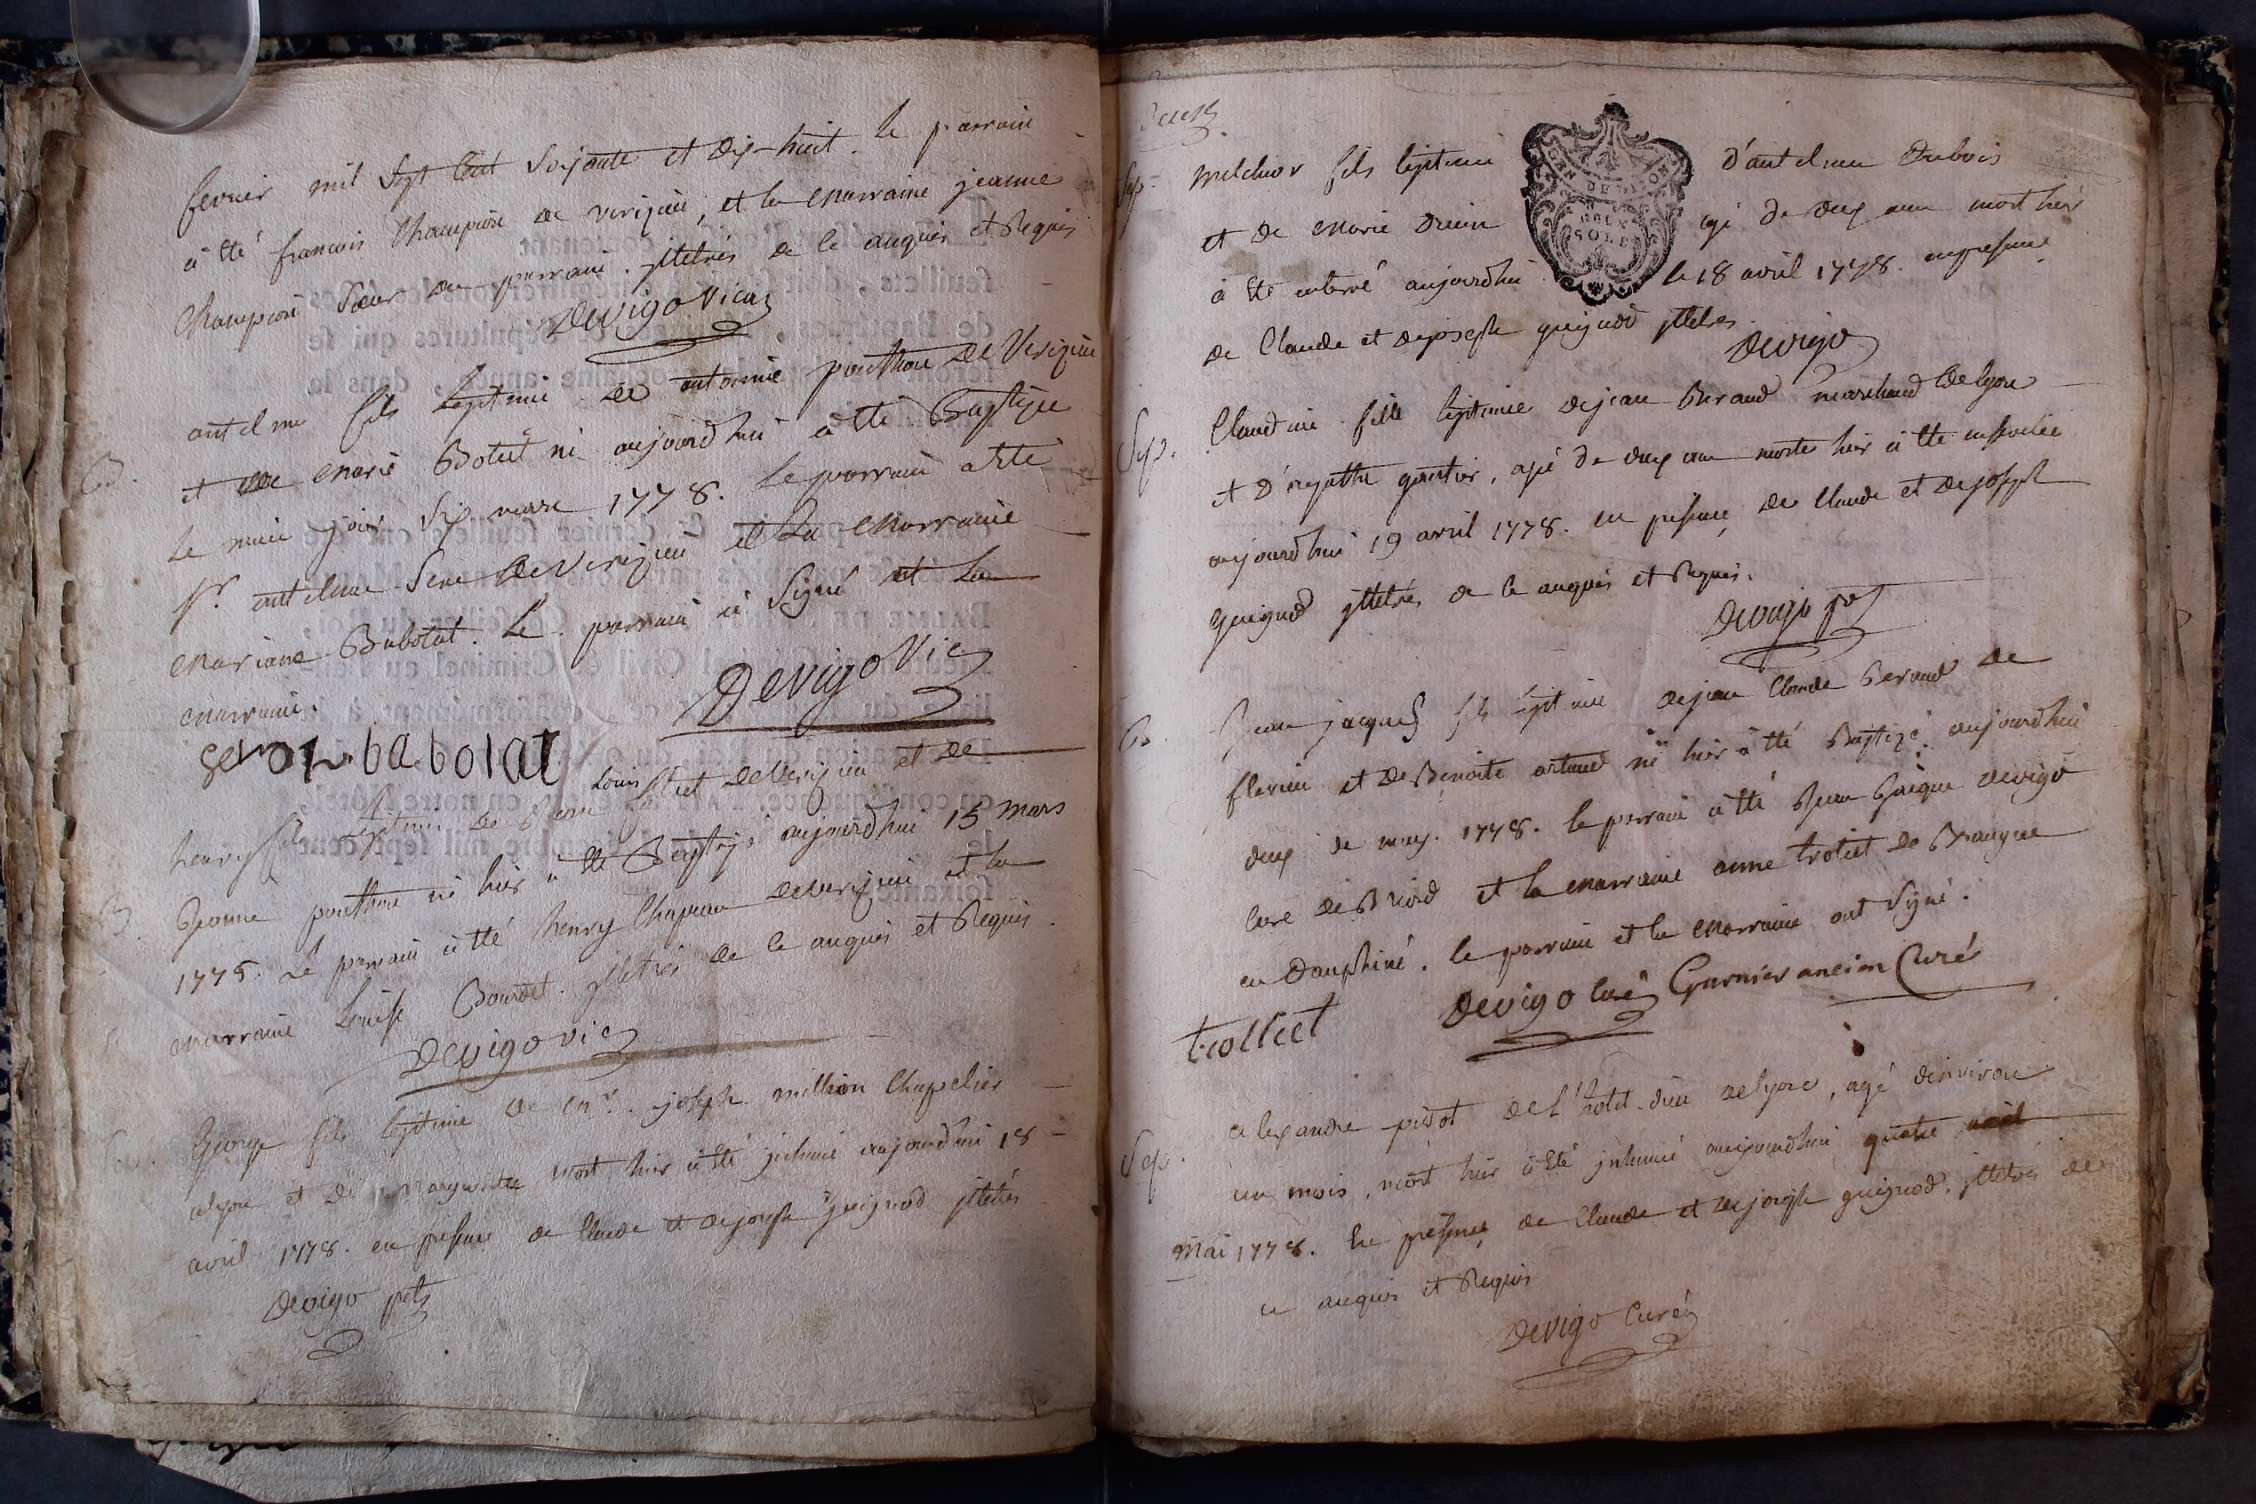 fevrier mil sept cent soixante et dix-huit. le parrain
à été francois Champion de verizieu, et la marraine jeanne
Champion soeur du parrain. illetrés de ce anquis et Requis
Devigo vicaz
B.
antelme fils legitime de antoine ponthon de Verizieu
et de marie Botut né aujourd'hui à été Baptizée
le meme jour six mars 1778. le parrain a été
Sr. antelme Sene de Verizieu et la marraine
mariane Babolat. le parrain à signé et la
marraine.
Devigo Vic
Seno babolat
Louis
B.
henry fils legitime de Blect de verizieu et de
ponthon né hier à été Baptizé aujourd'hui 15 mars
1775. Le parrain à été henry Chapeau de verizieu et la
marraine Louise Bourdet. illetrés de ce anquis et Requis.
Devigo vic
George fils legitime de mr. joseph million Chapelier
a lyon et de Marguerite mort hier à été inhumé aujourd'hui 18
avril 1778. en presence de Claude et de joseph Guignod illetrés
Devigo
Sep.
melchior fils legitime d'antelme Dubois
et de marie Druin agé de deux ans mort hier
à été enterré aujourdhui le 18 avril 1778. en presence
de Claude et de joseph guignod illetres.
GEN DE DIJON
SOLS
Devigo
Sep.
Claudine fille legitime de jean Beraud marchand de lyon
et d'agathe gontier, agé de deux ans morte hier à été ensevelie
aujourd'hui 19 avril 1778. en presence de Claude et de joseph
guignod illetrés de ce anquis et Requis.
Devigo
B.
Jean jacques fils legitime de jean Claude Beraud de
flevieu et de Benoite artaud né hier à été Baptizé aujourdhui
deux de may. 1778. le parrain à été Jean Jacque devigo
curé de Briord et la marraine anne trolliet de Brangue
en Dauphiné. le parrain et la marraine ont signé.
trolliet
Devigo curé
Garnier ancien Curé
Sep.
alexandre pivot de l'hotel-dieu de lyon, agé d'environ
un mois, mort hier à été inhumé aujourdhui quatre
Mai 1778. En presence de Claude et de joseph guignod. illetrés de
ce anquis et Requis
Devigo Curé